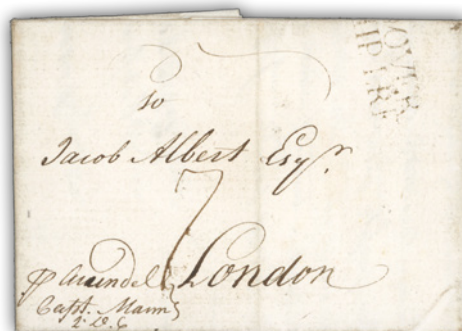 DOVER
SHIP LRE
to
Jacob Albert Esqr.
7
London
p Arundel
Capt. Mann